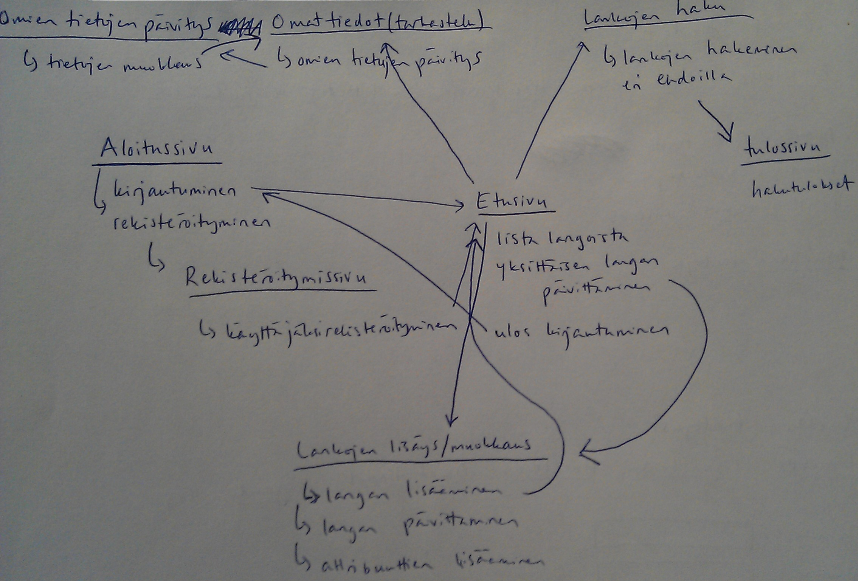 Omien tietojen päivitys
↳ tietojen muokkaus
Omat tiedot (tarkastele)
↳ omien tietojen päivitys
Lankojen haku
↳ lankojen hakeminen
eri ehdoilla
tulossivu
hakutulokset
Aloitussivu
↳ kirjautuminen
↳ rekisteröityminen
Rekisteröitymissivu
↳ käyttäjäksi rekisteröityminen
Etusivu
lista langoista
yksittäisen langan
päivittäminen
ulos kirjautuminen
Lankojen lisäys/muokkaus
↳ langan lisääminen
↳ langan päivittäminen
↳ attribuuttien lisääminen